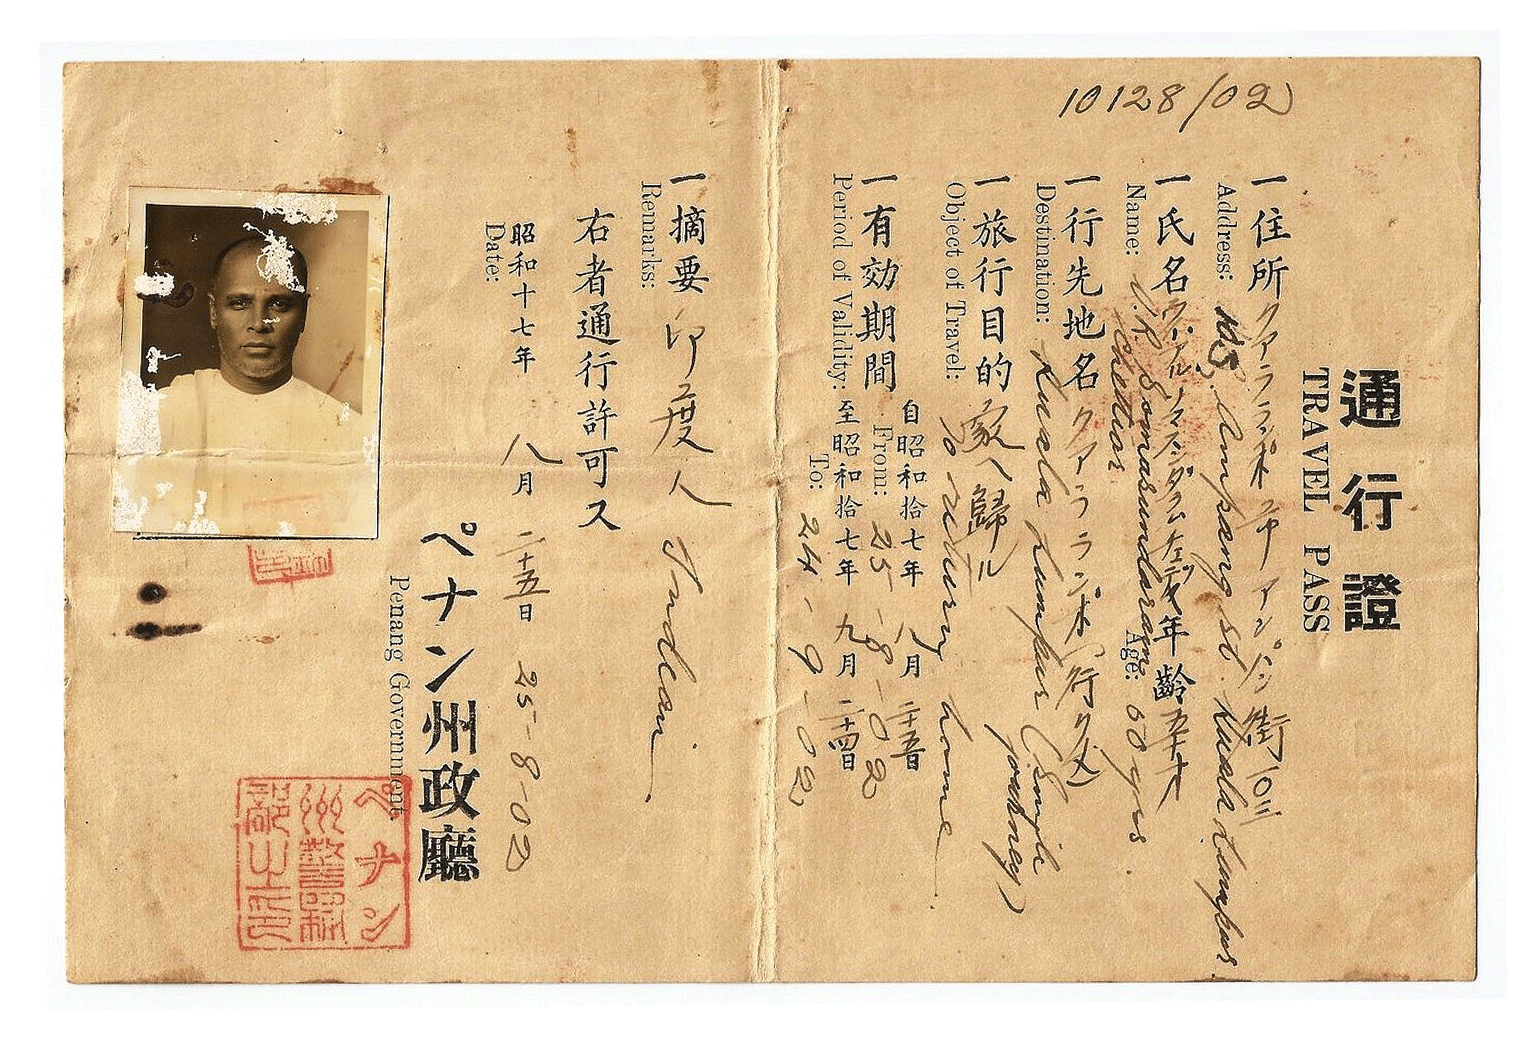 10128/02
通行證
TRAVEL PASS
一住所 クアラランポー市アンパン街一〇三
Address: 103, Ampang St. Kuala Lumpur.
一氏名
Name: Somasundaram
Chettiar
年齢 五十才
Age: 50 yrs.
一行先地名 クアラランポー(行ノミ)
Destination: Kuala Lumpur (Single
journey)
一旅行目的 家ヘ歸ル
Object of Travel: To return home
一有効期間 自昭和拾七年 八月 二十五日
From: 25-8-02
至昭和拾七年 九月 二十四日
Period of Validity: To: 24-9-02
一摘要 印度人
Remarks: Indian
右者通行許可ス
昭和十七年 八月 二十五日
Date: 25-8-02
ペナン州政廳
Penang Government.
ペナン
州警務科
部之印